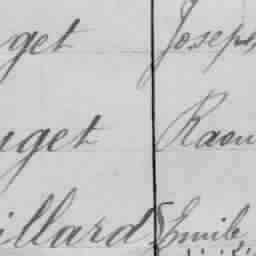 get Joseph
uget Raou
illard Emile